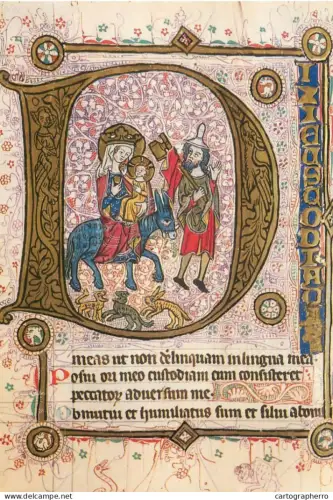 D
IXICUSTODIA
meas ut non delinquam in lingua mea
Posui ori meo custodiam cum consisteret
peccator adversum me
Obmutui et humiliatus sum et silui a boni
www.delcampe.net
cartographerro